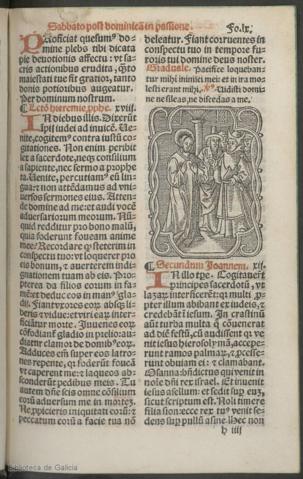 Sabbato post dominicã in passione.
Fo.lx.
Proficiat quesumꝰ do
mine plebs tibi dicata
pie deuotionis affectu: vt sa
cris actionibus erudita, q̃to
maiestati tue fit gratior, tanto
donis potioribus augeatur.
Per dominum nostrum.
Lectio hieremie, pphe. xviij.
In diebus illis. Dixerũt
impij iudei ad inuicẽ. Ue
nite, cogitemꝰ contra iustũ co
gitationes. Non enim peribit
lex a sacerdote, neqꝫ consilium
a sapiente, nec sermo a prophe
ta. Uenite, percutiamꝰ eũ lin
gua: et non attẽdamus ad vni
uersos sermones eius. Atten
de domine ad me: et audi vocẽ
aduersariorum meorum. Nũ
quid redditur pro bono malũ,
quia foderunt foueam anime
mee? Recordare ꝙ steterim in
conspectu tuo: vt loquerer pro
eis bonum, et auerterem indi
gnationem tuam ab eis. Pro
pterea da filios eorum in fa
mẽ: et deduc eos in manꝰ gla
dij. Fiant vxores eorũ absqꝫ li
beris et vidue: et viri earũ inter
ficiãtur morte. Iuuenes eorũ
cõfodiant̃ gladio in prelio: au
diatur clamor de domibꝰ eorũ.
Adduces em̃ super eos latro
nes repente, qꝛ foderũt foueã
vt caperent me: et laqueos abs
conderũt pedibus meis. Tu
autem dñe scis omne cõsilium
eorũ aduersum me in mortẽ.
Ne ppicieris iniquitati eorũ: et
peccatum eorũ a facie tua nõ
deleatur. Fiant corruentes in
conspectu tuo in tempore fu
roris tui domine deus noster.
Graduale. Pacifice loqueban
tur mihi inimici mei: et in ira mo
lesti erant mihi. Uidisti domi
ne ne sileas, ne discedas a me.
Secundum Joannem. xij.
In illo tpe. Cogitauerũt
principes sacerdotũ, vt
lazarũ interficerẽt: qꝛ multi ppter
illum abibant ex iudeis, et
credebãt in iesum. In crastinũ
aũt turba multa q̃ cõuenerat
ad diẽ festũ, cũ audissent qꝛ ve
nit iesus hierosolymã, accepe
runt ramos palmarũ, et pcesse
runt obuiam ei: et clamabant.
Osanna bñdictus qui venit in
noĩe dñi rex israel. Et inuenit
iesus asellum: et sedit sup eũ,
sicut scriptum est. Noli timere
filia sion: ecce rex tuꝰ venit se
dens sup pullũ asine. Hec non
h iiij
Biblioteca de Galicia